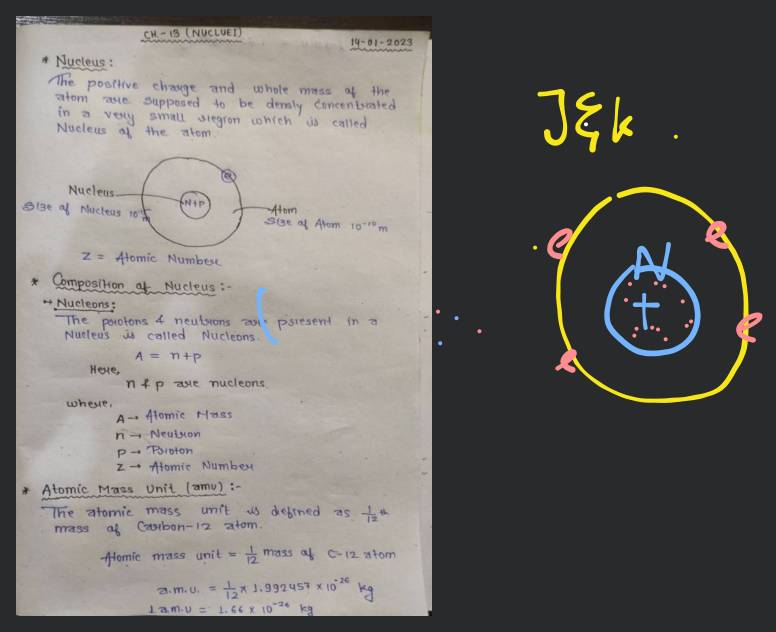 CH.-13 (NUCLUEI)
14-01-2023
* Nucleus :
The positive charge and whole mass of the
atom are supposed to be densly concentrated
in a very small region which is called
Nucleus of the atom.
Nucleus
N+P
e
Size of Nucleus
Atom
Size of Atom 10⁻¹⁰ m
Z = Atomic Number
* Composition of Nucleus :-
→ Nucleons :
The protons & neutrons are present in a
Nucleus is called Nucleons.
A = n+p
Here,
n & p are nucleons.
where,
A → Atomic Mass
n → Neutron
p → Proton
Z → Atomic Number
* Atomic Mass Unit (amu) :-
The atomic mass unit is defined as 1/12 th
mass of Carbon-12 atom.
Atomic mass unit = 1/12 mass of C-12 atom
a.m.u. = 1/12 × 1.992457 × 10⁻²⁶ kg
1 a.m.u = 1.66 × 10⁻²⁶ kg
J&k .
e e
N
+
e e